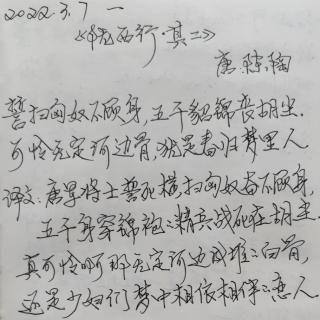 2022.3.7 一
《陇西行·其二》
唐:陈陶
誓扫匈奴不顾身,五千貂锦丧胡尘.
可怜无定河边骨,犹是春归梦里人
译文:唐军将士誓死横扫匈奴奋不顾身,
五千身穿锦袍的精兵战死在胡尘.
真可怜啊那无定河边成堆的白骨,
还是少妇们梦中相依相伴的恋人